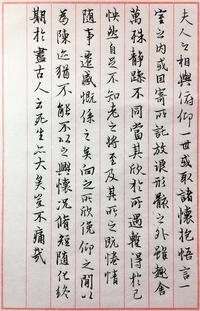 夫人之相與俯仰一世或取諸懷抱悟言一
室之內或因寄所託放浪形骸之外雖趣舍
萬殊靜躁不同當其欣於所遇暫得於己
怏然自足不知老之將至及其所之既惓情
隨事遷感慨係之矣向之所欣俛仰之間以
為陳迹猶不能不以之興懷況脩短隨化終
期於盡古人云死生亦大矣豈不痛哉